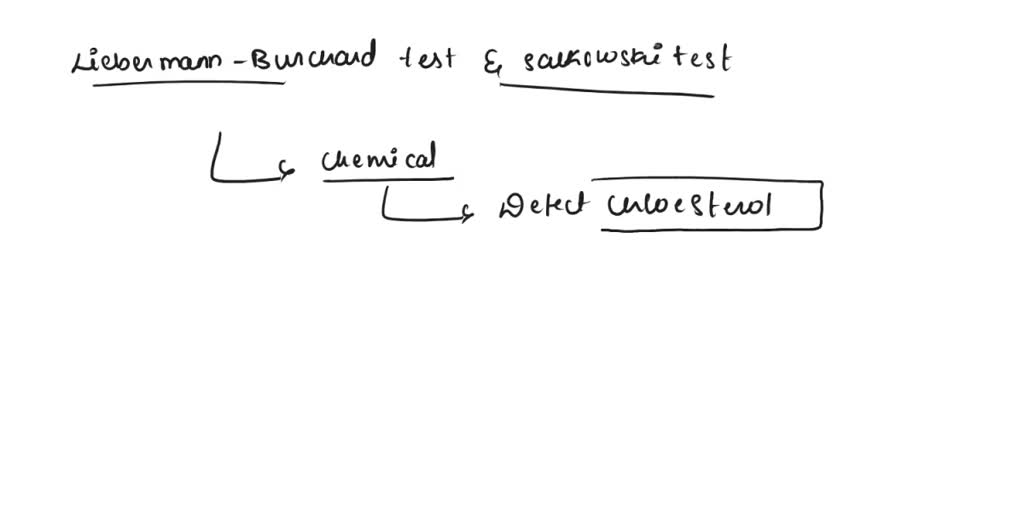 Liebermann - Burchard test & salkowski test
chemical
Detect chloesterol